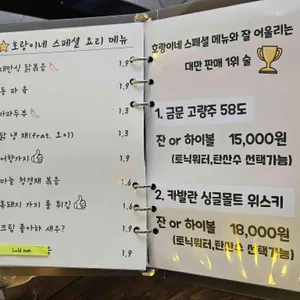 호랑이네 스페셜 요리 메뉴
대만식 닭볶음 1.9
동파육 1.9
마파두부 1.3
닭 냉채(feat. 오이) 1.3
어향가지 1.9
마늘 청경채 볶음 1.6
통돼지 가지 튀김 1.6
크림 좋아하 새우? 1.9
Sold out
1.9
호랑이네 스페셜 메뉴와 잘 어울리는
대만 판매 1위 술
1. 금문 고량주 58도
잔 or 하이볼 15,000원
(토닉워터,탄산수 선택가능)
2. 카발란 싱글몰트 위스키
잔 or 하이볼 18,000원
(토닉워터,탄산수 선택가능)